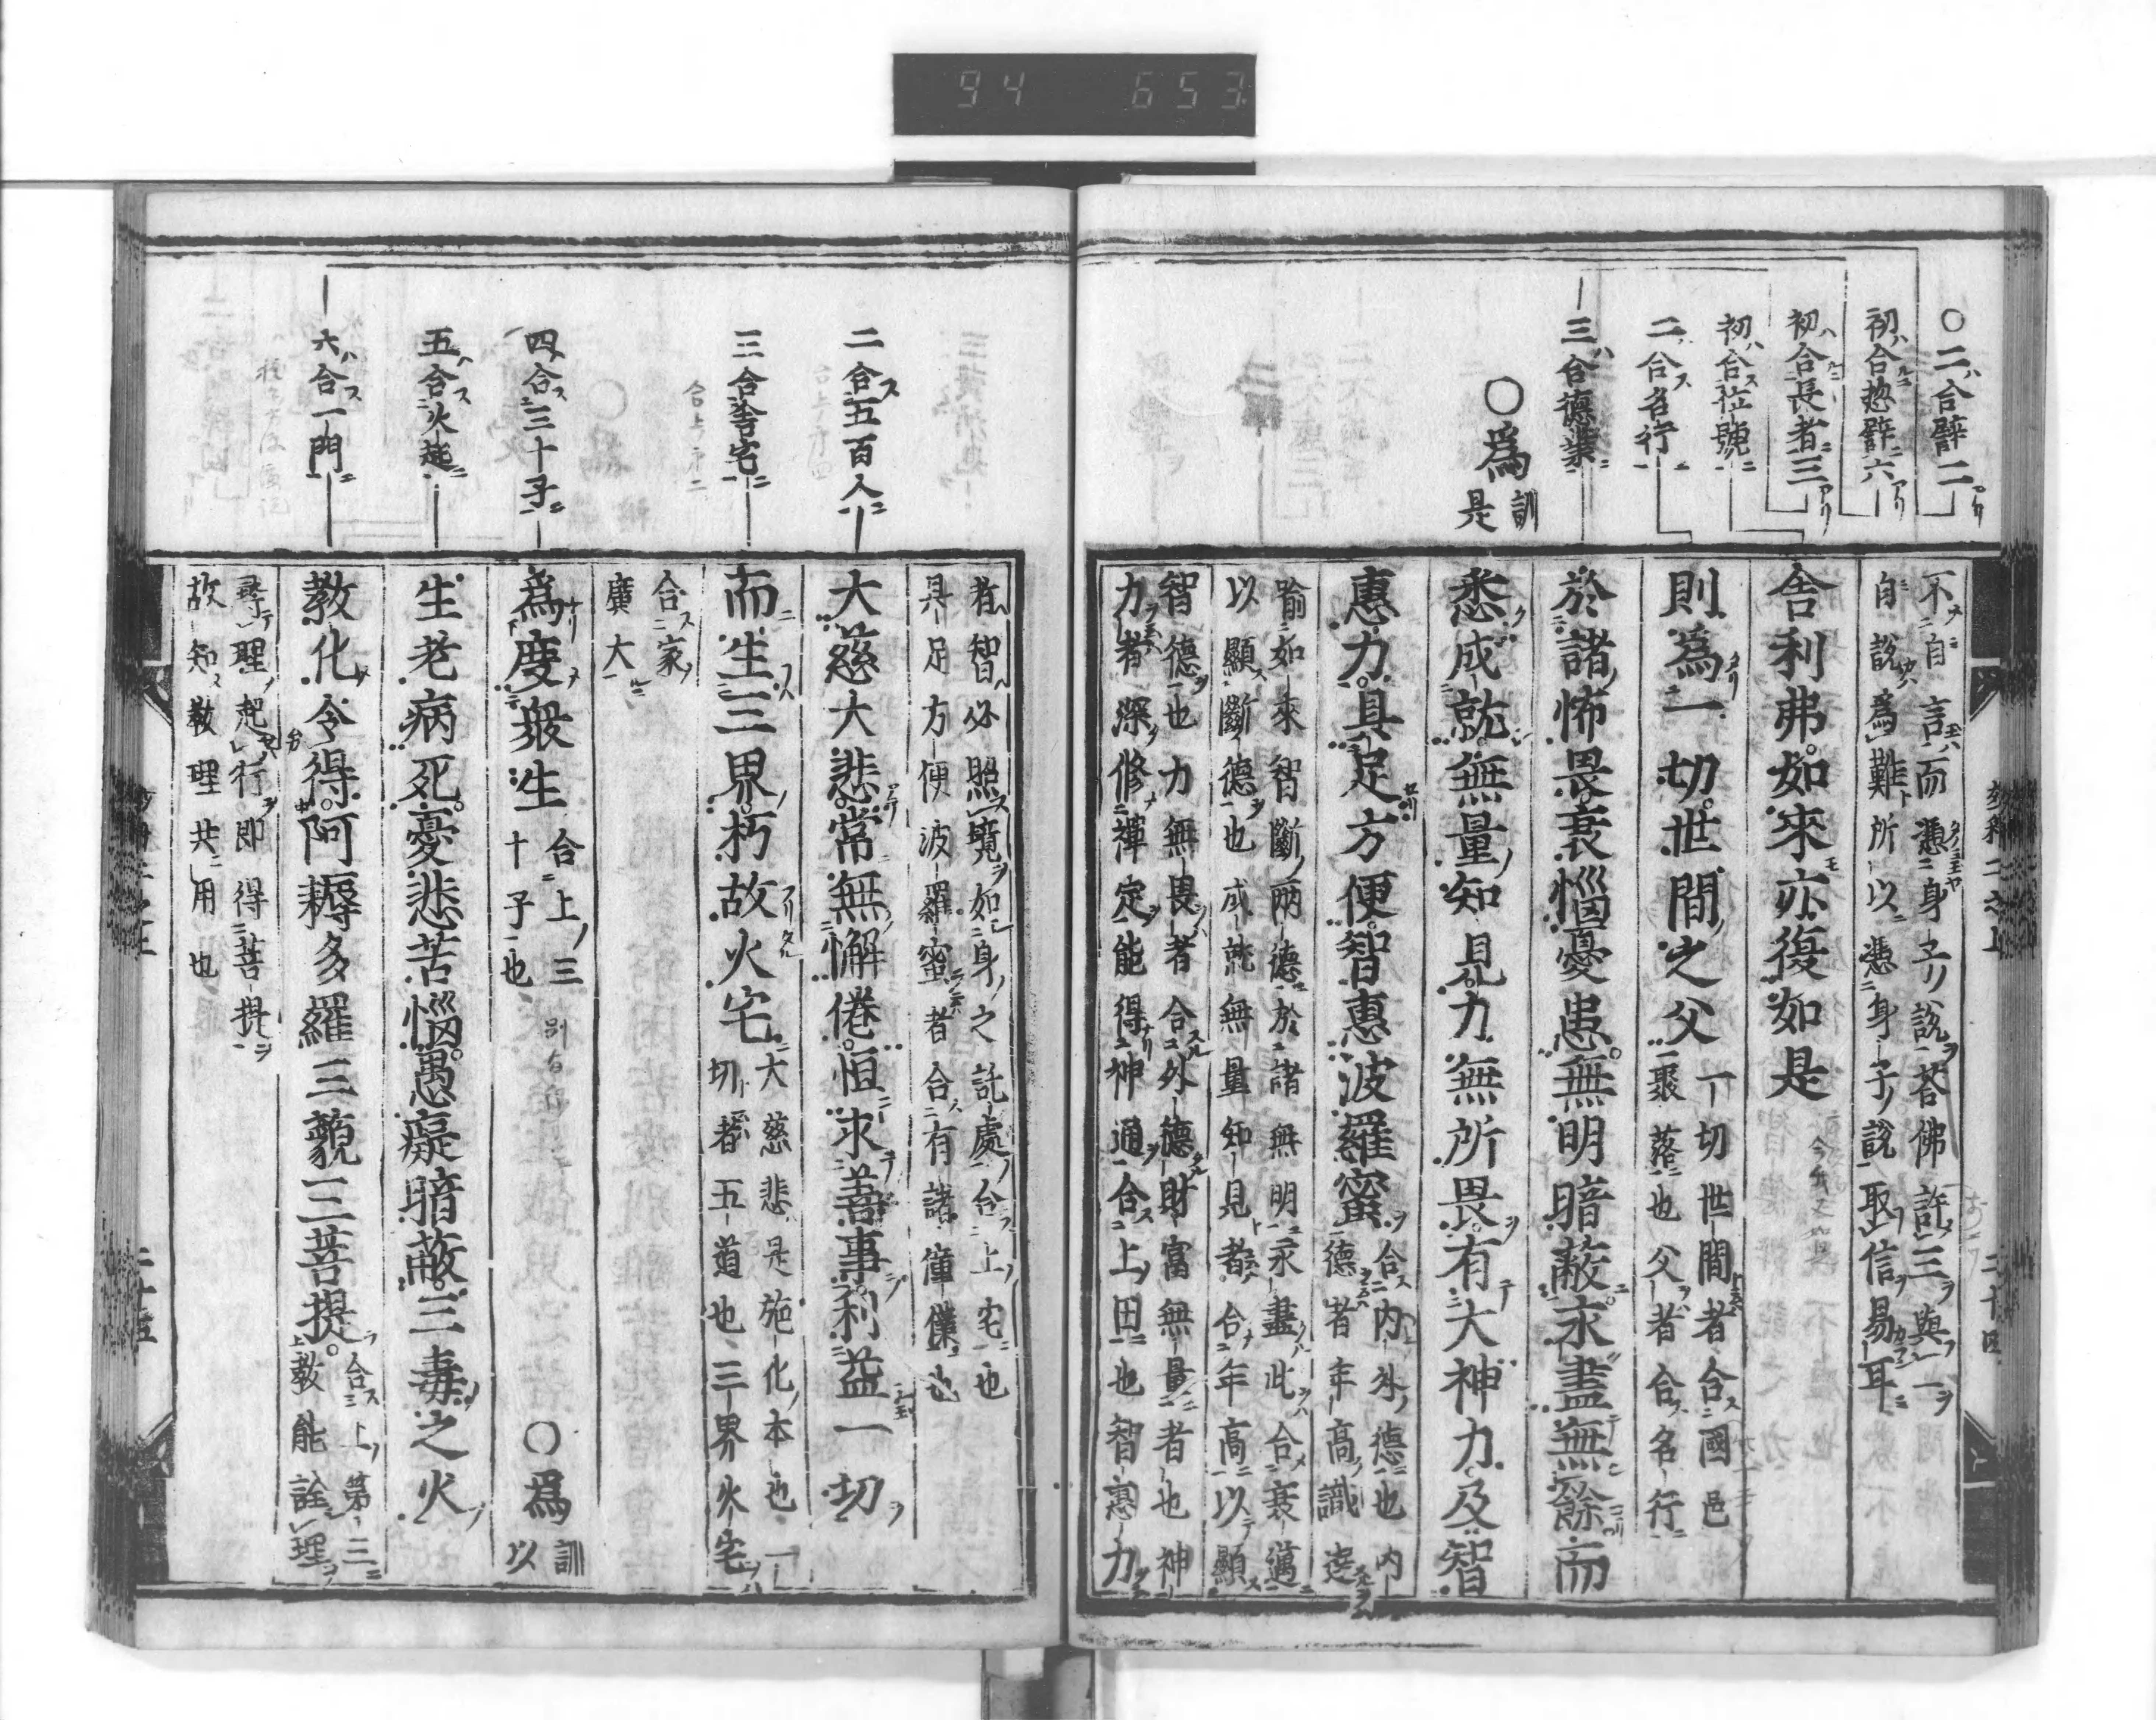 94 653
○二合譬二
初合揔譬六
初合長者三
初合位號
二合名行
三合德業
○爲
訓
是
不自言而憑身子說荅佛許三與一
自說爲難所以憑身子說取信易耳
舍利弗如來亦復如是
則爲一切世間之父
一切世間者合國邑
聚落也父者合名行
於諸怖畏衰惱憂患無明暗蔽永盡無餘而
悉成就無量知見力無所畏有大神力及智
惠力具足方便智惠波羅蜜
合内外德也内
德者年高識達
喻如來智斷兩德於諸無明永盡此合衰邁
以顯斷德也成就無量知見者合年高以顯
智德也力無畏者合外德財富無量者也神
力者深修禪定能得神通合上田也智惠力
者智必照境如身之託處合上宅也
具足方便波羅蜜者合有諸僮僕也
二合五百人
大慈大悲常無懈倦恒求善事利益一切
三合舍宅
而生三界朽故火宅
大慈悲是施化本也一
切者五道也三界火宅
合家
廣大
四合三十子
爲度衆生
合上三
十子也
○爲
訓
以
五合火起
生老病死憂悲苦惱愚癡暗蔽三毒之火
六合一門
教化令得阿耨多羅三藐三菩提
合上第三
教能詮理
尋理起行即得菩提
故知教理共用也